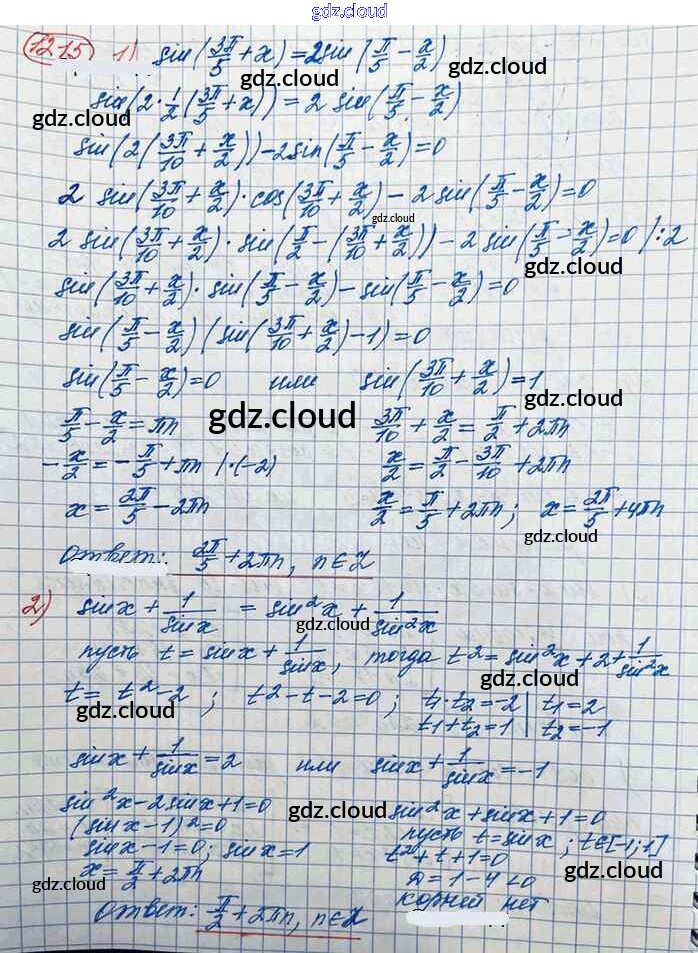 gdz.cloud
1215 1) sin(3π/5 + x) = 2sin(π/5 − x/2)
gdz.cloud
sin(2·1/2(3π/5 + x)) = 2 sin(π/5 − x/2)
gdz.cloud gdz.cloud
sin(2(3π/10 + x/2)) − 2sin(π/5 − x/2) = 0
2 sin(3π/10 + x/2)·cos(3π/10 + x/2) − 2 sin(π/5 − x/2) = 0
gdz.cloud
2 sin(3π/10 + x/2)·sin(π/2 − (3π/10 + x/2)) − 2 sin(π/5 − x/2) = 0 |:2
gdz.cloud gdz.cloud
sin(3π/10 + x/2)·sin(π/5 − x/2) − sin(π/5 − x/2) = 0
sin(π/5 − x/2)(sin(3π/10 + x/2) − 1) = 0
sin(π/5 − x/2) = 0 или sin(3π/10 + x/2) = 1
gdz.cloud gdz.cloud gdz.cloud
π/5 − x/2 = πn 3π/10 + x/2 = π/2 + 2πn
−x/2 = −π/5 + πn |·(−2) x/2 = π/2 − 3π/10 + 2πn
x = 2π/5 − 2πn x/2 = π/5 + 2πn; x = 2π/5 + 4πn
gdz.cloud gdz.cloud
Ответ: 2π/5 + 2πn, n∈Z
2) sinx + 1/sinx = sin²x + 1/sin²x
gdz.cloud
пусть t = sinx + 1/sinx, тогда t² = sin²x + 2 + 1/sin²x
gdz.cloud
t = t² − 2; t² − t − 2 = 0; t₁·t₂ = −2 | t₁ = 2
gdz.cloud
t₁ + t₂ = 1 | t₂ = −1
gdz.cloud
sinx + 1/sinx = 2 или sinx + 1/sinx = −1
sin²x − 2sinx + 1 = 0 sin²x + sinx + 1 = 0
gdz.cloud
(sinx − 1)² = 0 пусть t = sinx; t∈[−1;1]
sinx − 1 = 0; sinx = 1 t² + t + 1 = 0
x = π/2 + 2πn D = 1 − 4 < 0
gdz.cloud gdz.cloud
корней нет
Ответ: π/2 + 2πn, n∈Z